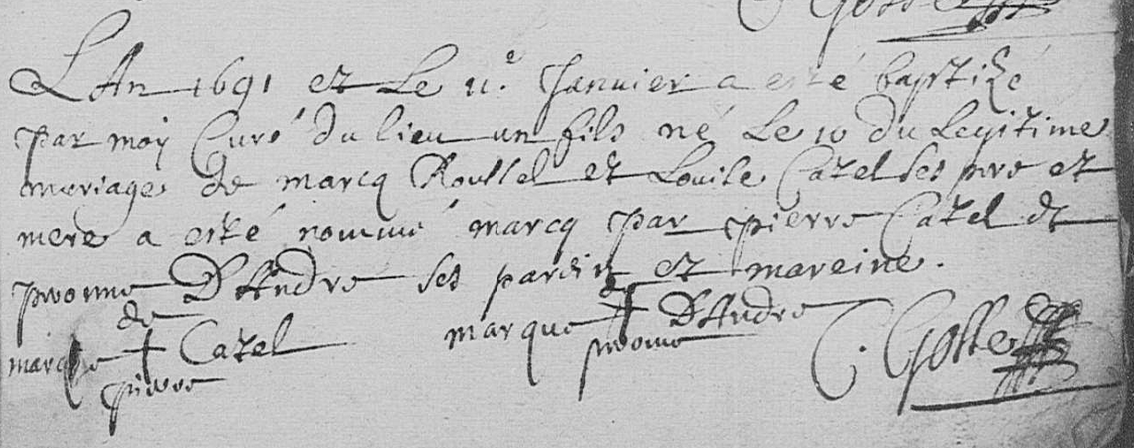 C Gosse
L'An 1691 et Le 11.e Janvier a esté baptizé
par moy Curé du lieu un fils né Le 10 du Legitime
mariage de marcq Roussel et Louise Catel ses pre et
mere a esté nommé marcq par pierre Catel et
pronne D'Andre ses parein et mareine.
marque de pierre Catel marque de pronne D'Andre C. Gosse